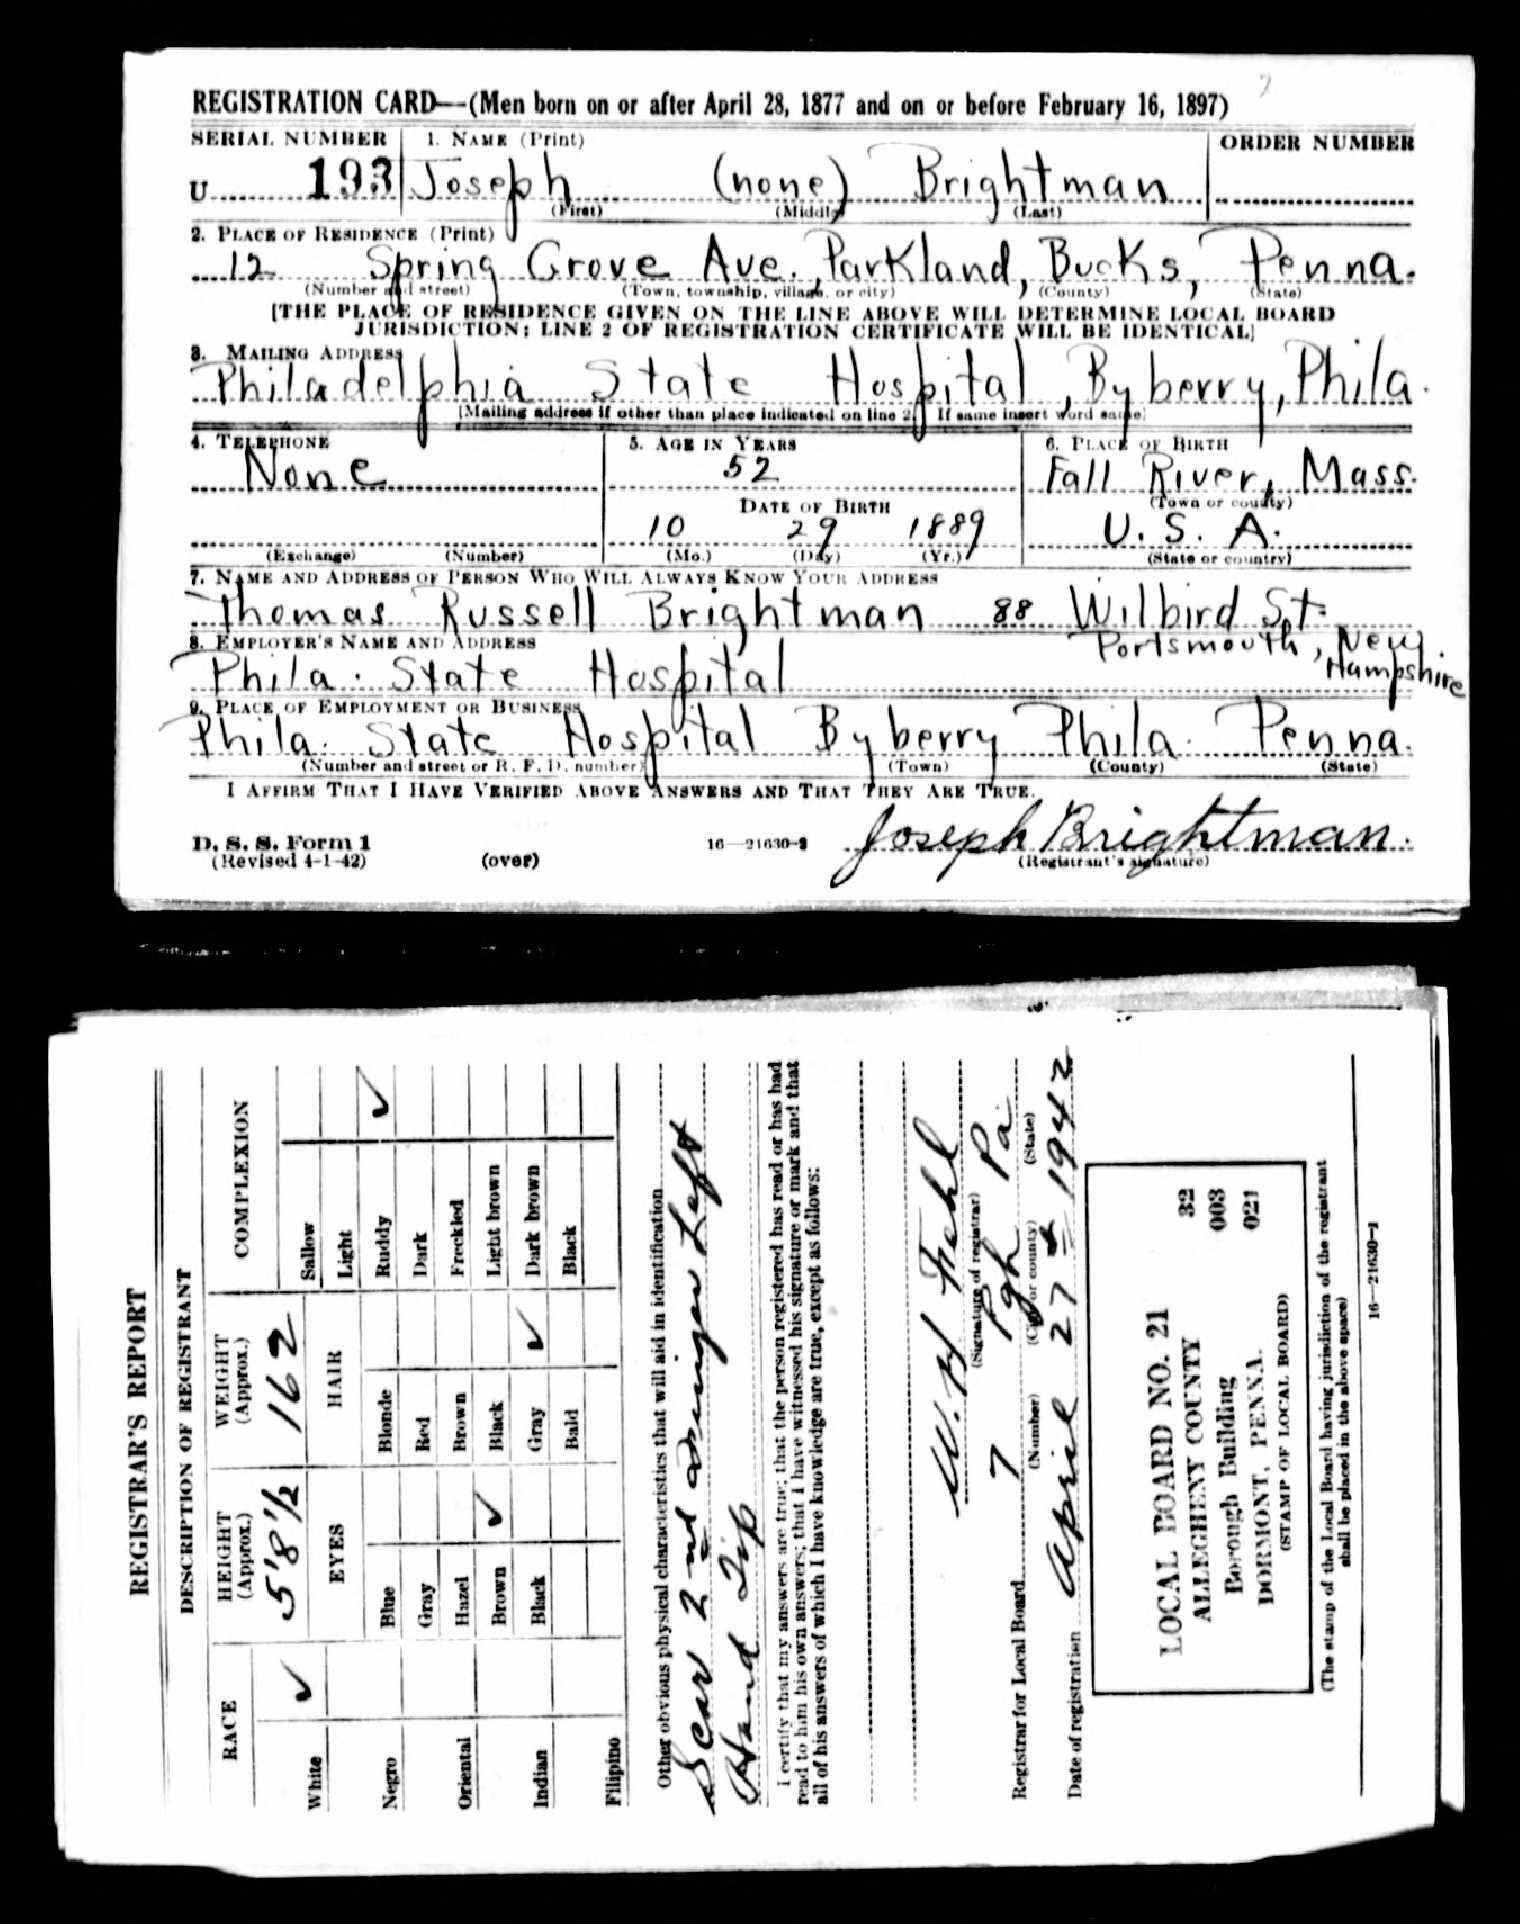 REGISTRATION CARD—(Men born on or after April 28, 1877 and on or before February 16, 1897)
SERIAL NUMBER 1. NAME (Print) ORDER NUMBER
U 193 Joseph (none) Brightman
(First) (Middle) (Last)
2. PLACE OF RESIDENCE (Print)
12 Spring Grove Ave., Parkland, Bucks, Penna.
(Number and street) (Town, township, village, or city) (County) (State)
[THE PLACE OF RESIDENCE GIVEN ON THE LINE ABOVE WILL DETERMINE LOCAL BOARD
JURISDICTION; LINE 2 OF REGISTRATION CERTIFICATE WILL BE IDENTICAL]
3. MAILING ADDRESS
Philadelphia State Hospital, Byberry, Phila.
[Mailing address if other than place indicated on line 2. If same insert word same]
4. TELEPHONE 5. AGE IN YEARS 6. PLACE OF BIRTH
None 52 Fall River, Mass.
DATE OF BIRTH (Town or county)
10 29 1889 U. S. A.
(Exchange) (Number) (Mo.) (Day) (Yr.) (State or country)
7. NAME AND ADDRESS OF PERSON WHO WILL ALWAYS KNOW YOUR ADDRESS
Thomas Russell Brightman 88 Wilbird St.
8. EMPLOYER'S NAME AND ADDRESS Portsmouth, New
Hampshire
Phila. State Hospital
9. PLACE OF EMPLOYMENT OR BUSINESS
Phila. State Hospital Byberry Phila. Penna.
(Number and street or R. F. D. number) (Town) (County) (State)
I AFFIRM THAT I HAVE VERIFIED ABOVE ANSWERS AND THAT THEY ARE TRUE.
D. S. S. Form 1
(Revised 4-1-42) (over) 16—21630-2 Joseph Brightman.
(Registrant's signature)
REGISTRAR'S REPORT
DESCRIPTION OF REGISTRANT
RACE HEIGHT (Approx.) WEIGHT (Approx.) COMPLEXION
White ✓ 5'8½ 162 Sallow
EYES HAIR Light
Negro Blue Blonde Ruddy ✓
Gray Red Dark
Oriental Hazel Brown Freckled
Brown ✓ Black Light brown
Indian Black Gray ✓ Dark brown
Bald Black
Filipino
Other obvious physical characteristics that will aid in identification
Scar 2nd Left
Hand Tip
I certify that my answers are true; that the person registered has read or has had
read to him his own answers; that I have witnessed his signature or mark and that
all of his answers of which I have knowledge are true, except as follows:
W. H.
(Signature of registrar)
Registrar for Local Board 7 Pgh Pa
(Number) (City or county) (State)
Date of registration April 27 - 1942
LOCAL BOARD NO. 21 32
ALLEGHENY COUNTY 003
Borough Building 021
DORMONT, PENNA.
(STAMP OF LOCAL BOARD)
(The stamp of the Local Board having jurisdiction of the registrant
shall be placed in the above space)
16—21630-1